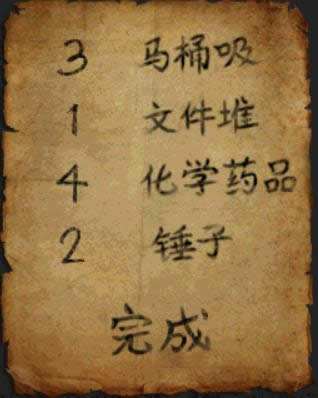 3 马桶吸
1 文件堆
4 化学药品
2 锤子
完成